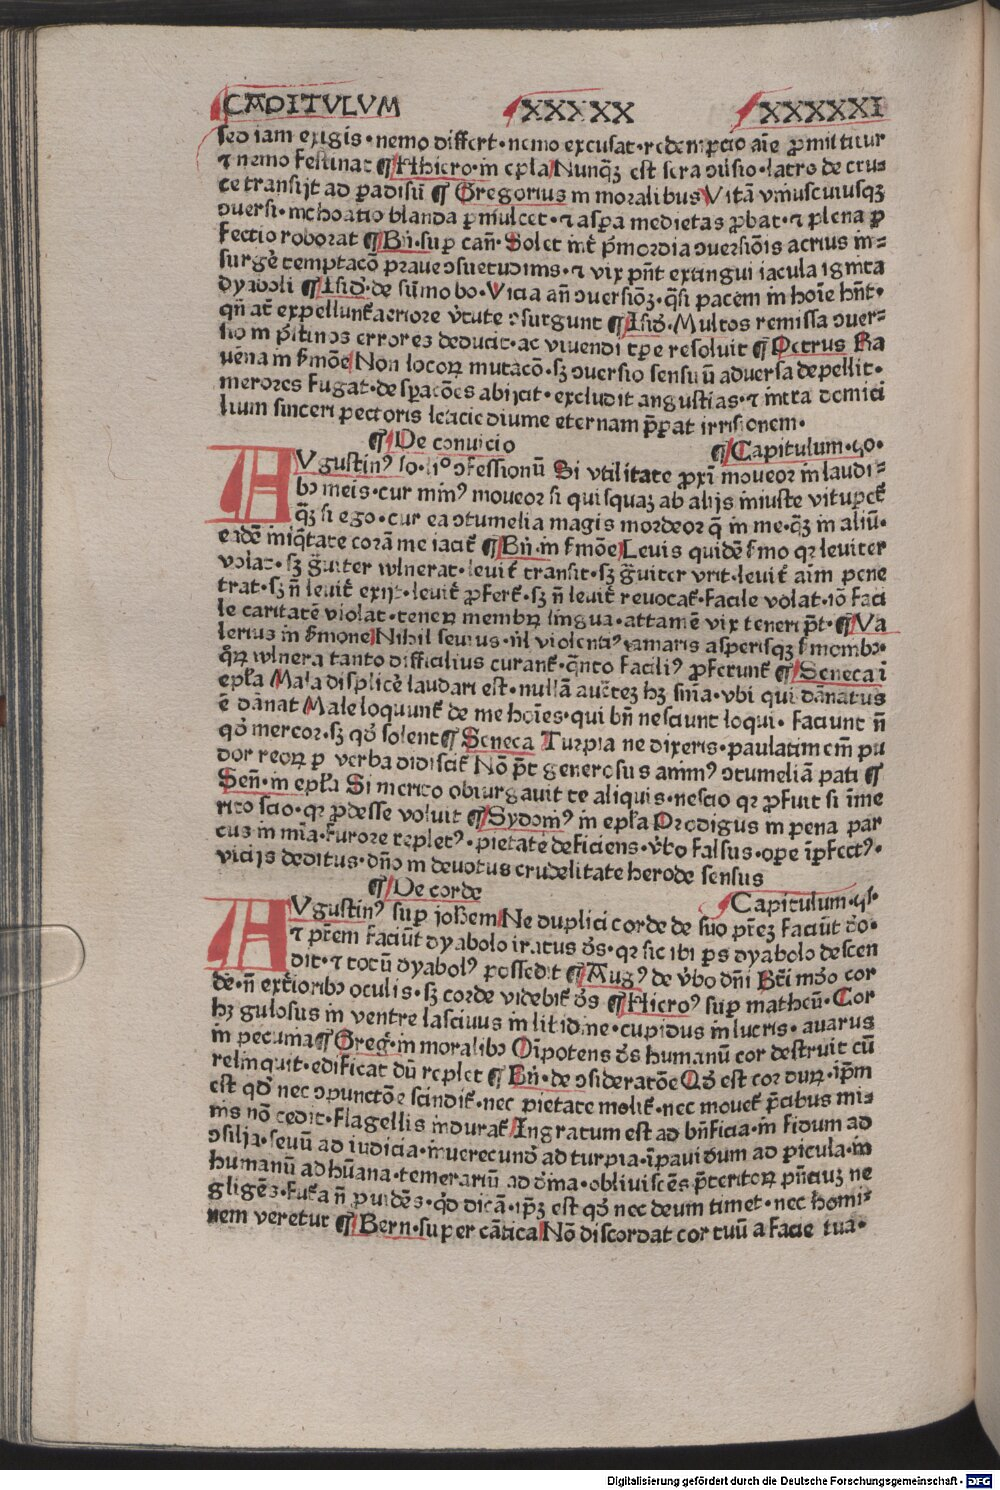 CAPITULUM XXXXX XXXXXI
sed iam exigis·nemo differt·nemo excusat·redempcio aīe ꝓmittitur
⁊ nemo festinat ¶ Hiero·in epła Nunqꝫ est sera ↄūsio·latro de cru⸗
ce transijt ad ꝑadisū ¶ Gregorius in moralibus Vitā vniuscuiusqꝫ
ↄuersi·inchoatio blanda ꝑmulcet·⁊ asꝑa medietas ꝓbat·⁊ plena ꝑ
fectio roborat ¶ Bñ·suꝑ cañ· Solet int̄ p̄mordia ↄuersiōis acrius in⸗
surgē temptacō praue ↄsuetudinis·⁊ vix pn̄t extingui iacula ignita
dyaboli ¶ Isid̄·de sūmo bo·Vicia añ ↄuersiōꝫ·q̄si pacem in hoīe hñt·
qñ at̄ expellunt᷑ acriore v̄tute ↄsurgunt ¶ Isid̄·Multos remissa ↄuer⸗
sio in p̄stinos errores deducit·ac viuendi tꝑe resoluit ¶ Petrus Ra
uena in s̄mōe Non locoꝝ mutacō·sꝫ ↄuersio sensuū aduersa depellit·
merores fugat·de sꝑacōes abijcit·excludit angustias·⁊ intra domici
lium sinceri pectoris leticie diuine eternam p̄ꝑat irrisionem·
¶ De conuicio ¶ Capitulum·50·
AVgustinꝰ ło·li° ↄfessionū Si vtilitate ꝓxī moueor in laudi⸗
bꝫ meis·cur minꝰ moueor si quisquaꝫ ab alijs iniuste vituꝑet᷑
qꝫ si ego·cur ea ↄtumelia magis mordeor q̄ in me·qꝫ in aliū·
eadē iniq̄tate corā me iacit᷑ ¶ Bñ·in s̄mōe Leuis quidē s̄mo qꝛ leuiter
volat·sꝫ g̃uiter vulnerat·leuit᷑ transit·sꝫ g̃uiter vrit·leuit᷑ aīm pene
trat·sꝫ ñ leuit᷑ exijt·leuit᷑ ꝓfert᷑·sꝫ ñ leuit᷑ reuocat᷑·Facile volat·iō faci
le caritatē violat·teneꝝ membrꝫ lingua·attamē vix teneri p̄t·¶ Va
lerius in s̄mone Nihil seuius·nīl violentiꝰ amaris asperisqꝫ s̄monibꝫ·
q̄ꝝ vulnera tanto difficilius curant᷑·q̄nto faciliꝰ ꝓferunt᷑ ¶ Seneca ī
epła Mala displicē laudari est·nullā auc̄teꝫ hꝫ sīna·vbi qui dānatus
ē dānat Male loquunt᷑ de me hoīes·qui bñ nesciunt loqui· Faciunt ñ
qd̄ mercor·sꝫ qd̄ solent ¶ Seneca Turpia ne dixeris·paulatim em̄ pu
dor reoꝝ ꝑ verba didiscit᷑ Nō p̄t generosus animꝰ ↄtumeliā pati ¶
Señ·in epła Si merito obiurgauit te aliquis·nescio qꝛ ꝓfuit si īme
rito scio·qꝛ ꝓdesse voluit ¶ Sydoniꝰ in epła Prodigus in pena par
cus in mīa·furore repletꝰ·pietate deficiens·v̄bo falsus·oꝑe īꝑfectꝰ·
vicijs deditus·dn̄o in deuotus crudelitate herode sensus
¶ De corde Capitulum·51·
AVgustinꝰ suꝑ joħem Ne duplici corde de suo pr̄eꝫ faciūt do·
⁊ pr̄em faciūt dyabolo iratus ds̄·qꝛ sic ibi ꝑs dyabolo descen
dit·⁊ totū dyabolꝰ possedit ¶ Augꝰ de v̄bo dn̄i Bt̄i mdo cor
de·ñ ext̄ioribꝫ oculis·sꝫ corde videbit᷑ ds̄ ¶ Hieroꝰ suꝑ matheū· Cor
hꝫ gulosus in ventre lasciuus in libidine·cupidus in lucris·auarus
in pecunia ¶ Greg̃·in moralibꝫ Oīpotens ds̄ humanū cor destruit cū
relinquit·edificat dū replet ¶ Bñ·de ↄsideratōe Qd̄ est cor durꝫ·īpm̄
est qd̄ nec ↄpunctōe scindit᷑·nec pietate molit᷑·nec mouet᷑ p̄cibus mi⸗
nis nō cedit·flagellis indurat᷑ Ingratum est ad bn̄ficia·in fidum ad
ↄsilja·seuū ad iudicia·inuerecund̄ ad turpia·īpauidum ad picula·in
humanū ad hūana·temerariū ad d̄ina·obliuiscēs p̄teritoꝝ pn̄ciuꝫ ne
gligēs·futa ñ ꝓuidēs·qd̄ dicā·ipꝫ est qd̄ nec deum timet·nec homi⸗
nem veretur ¶ Bern·super cātica Nō discordat cor tuū a facie tua·
Digitalisierung gefördert durch die Deutsche Forschungsgemeinschaft - DFG